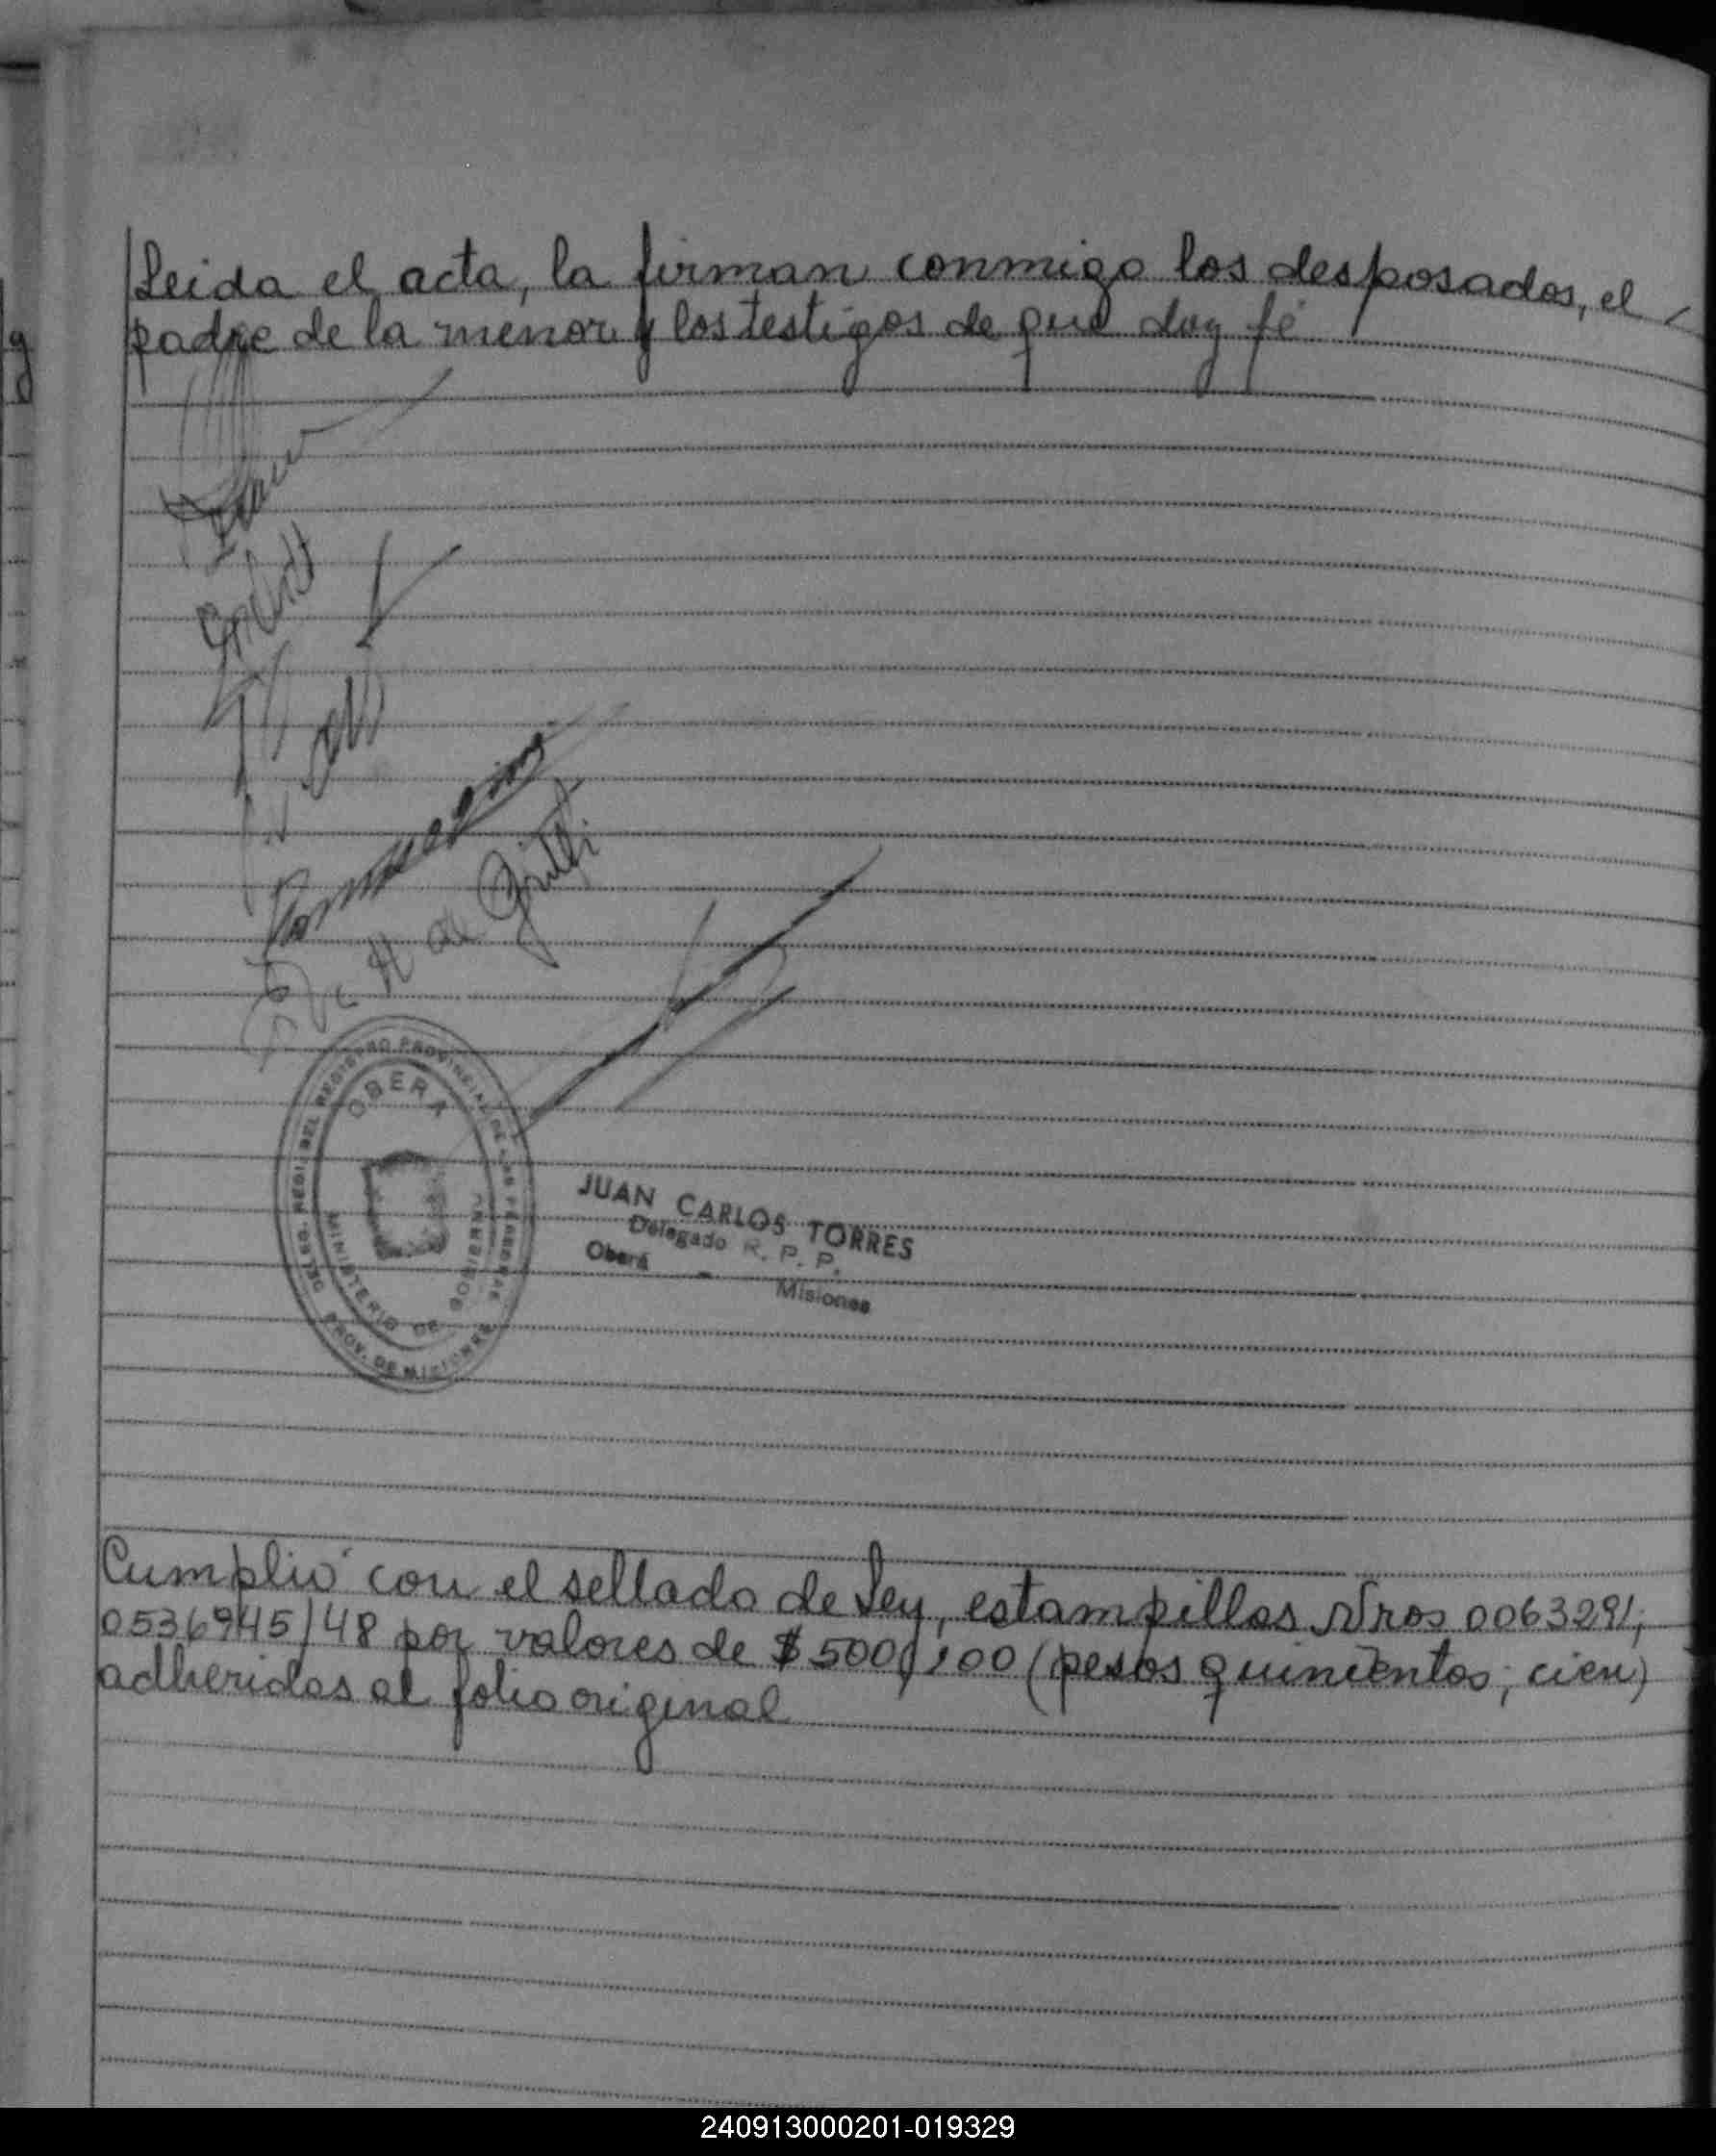 Leida el acta, la firman conmigo los desposados, el
padre de la menor y los testigos de que doy fé
OBERA
MINISTERIO DE
PROV. DE MISIONES
JUAN CARLOS TORRES
Delegado R. P. P.
Oberá - Misiones
Cumplió con el sellado de Ley, estampillas Nros 0063291;
0536945/48 por valores de $ 500; 100 (pesos quinientos; cien)
adheridas al folio original
240913000201-019329